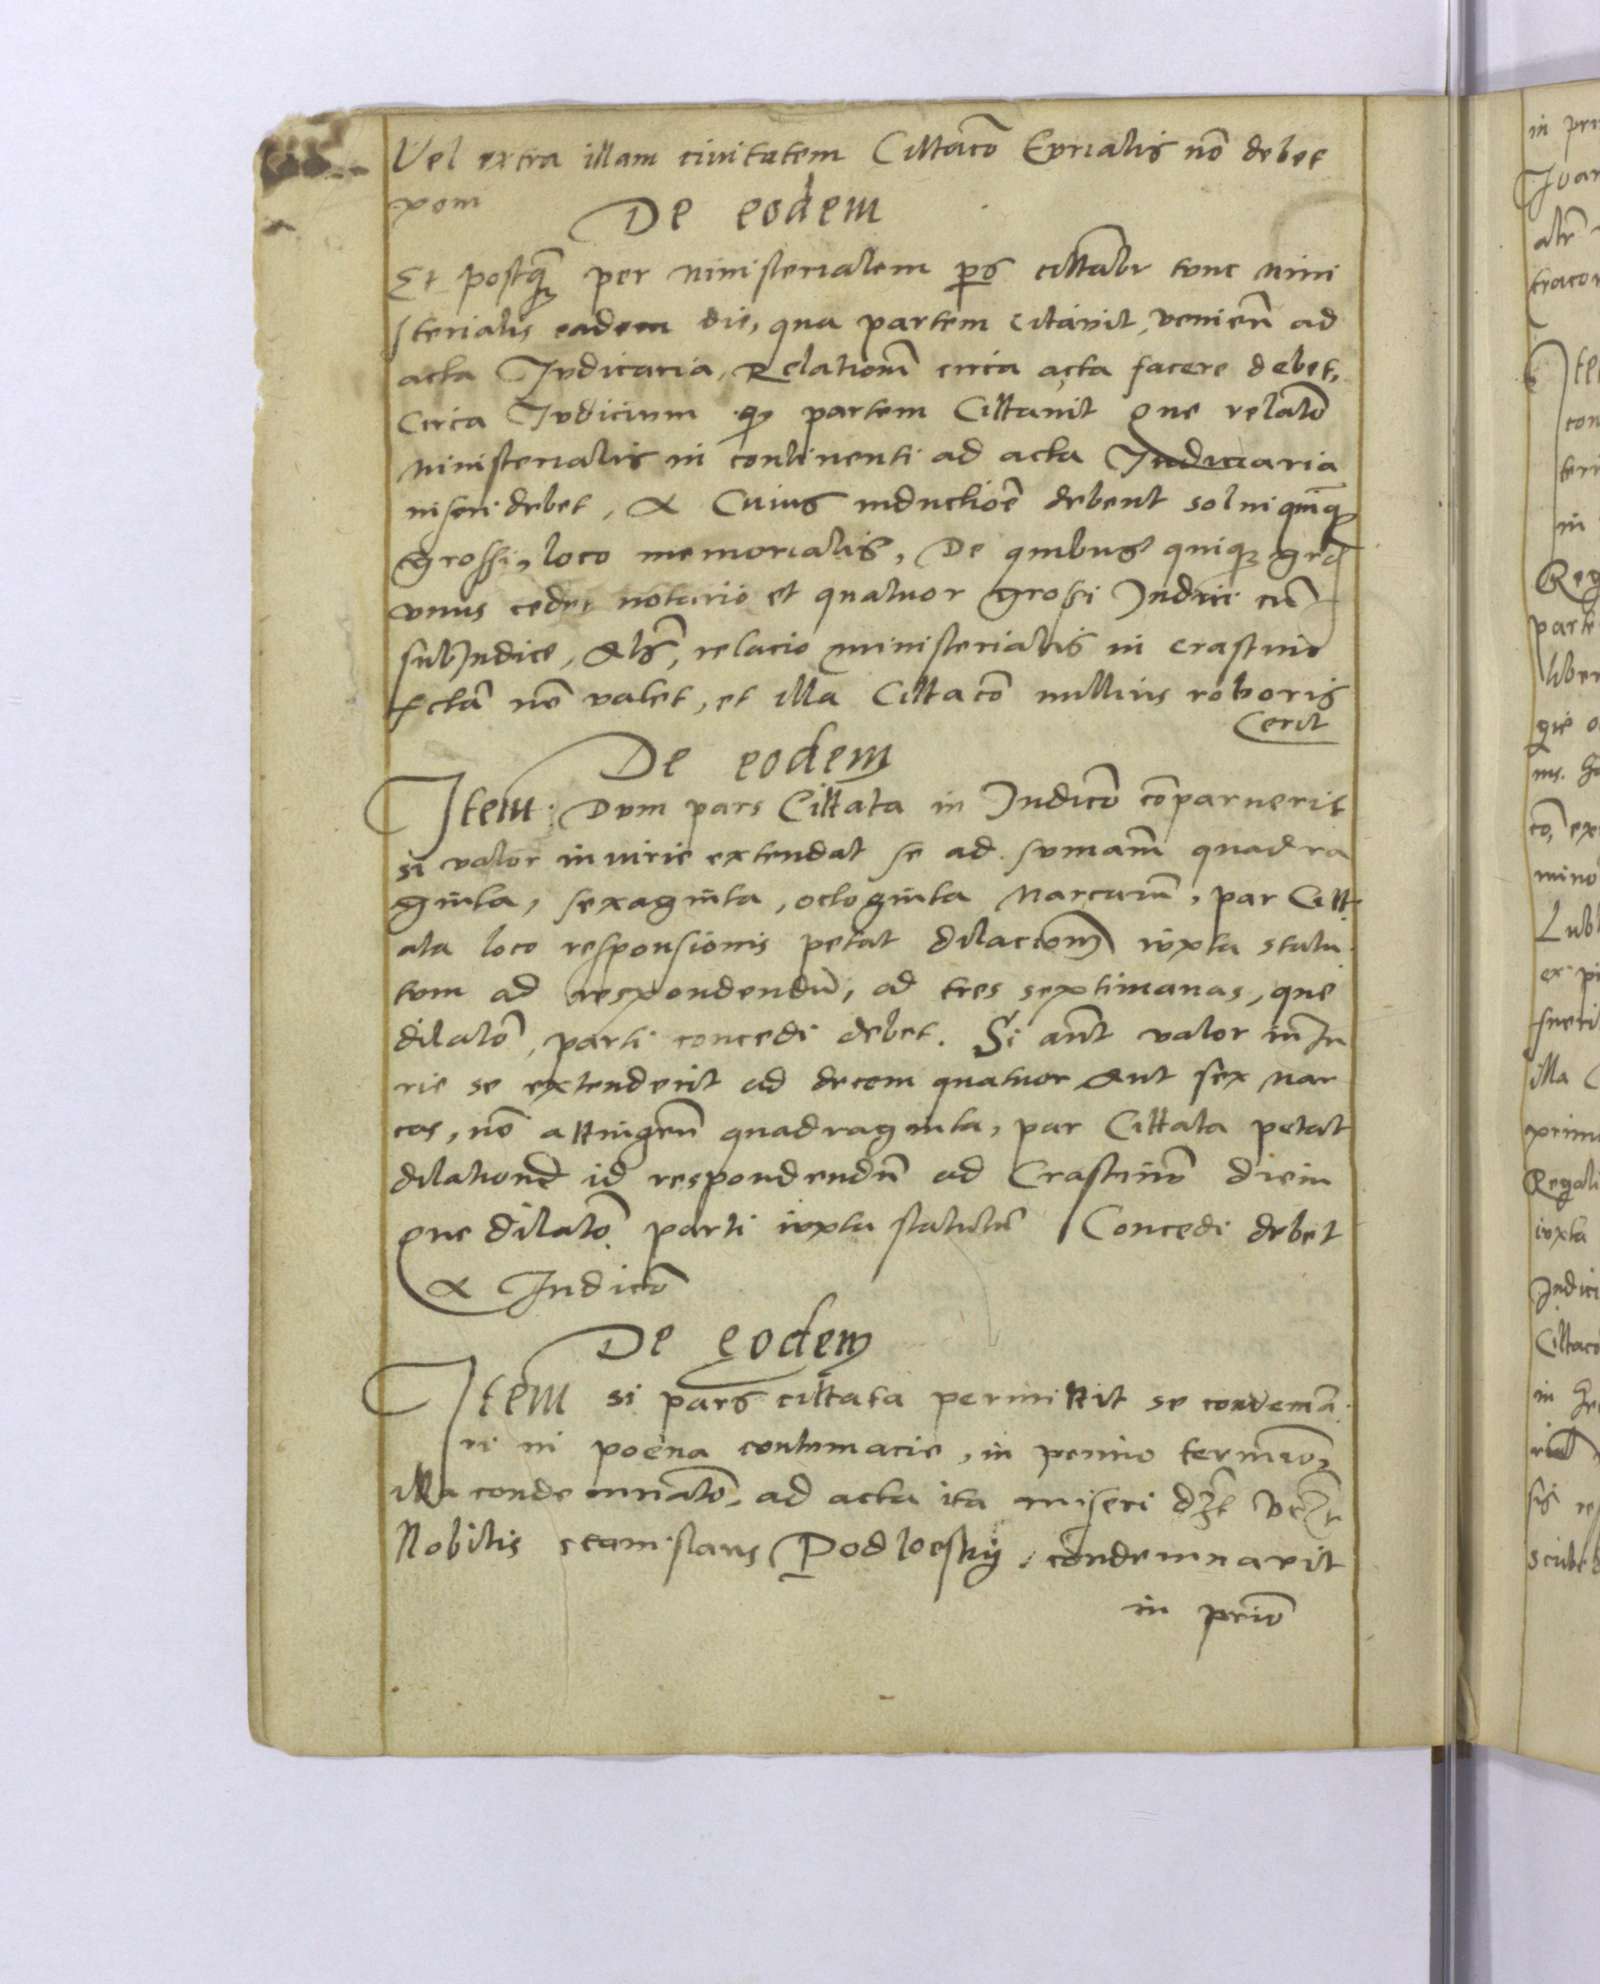 Vel extra illam civitatem Cittacõ Eprialis nõ debet
poni
De eodem
Et postq̃ per ministerialem ps cittatr tunc mini
sterialis eadem die, qua partem citavit, venien̄ ad
acta Judicaria, Relationẽ circa acta facere debet,
Circa Judicium q partem Cittavit que relatõ
ministerialis in continenti ad acta Judiciaria
inseri debet, & Cuius inductiõe debent solvi quinq
grossi, loco memorialis, De quibus quinq gros
unus cedet notario et quatuor grossi Judici cũ
subJudice, als, relacio ministerialis in crastino
fctã nõ valet, et illa Cittacõ nullius roboris
erit
De eodem
Item: Dum pars Cittata in Judicõ cõparuerit
si valor iniurie extendat se ad sumam̃ quadra
ginta, sexaginta, octoginta Marcarum̃, par Citt
ata loco responsionis petat dilacionem iuxta statu
tum ad respondendũ, ad tres septimanas, que
dilatõ, parti concedi debet. Si aut̃ valor inIu
rie se extenderit ad decem quatuor aut sex Mar
cas, nõ attingen̄ quadraginta, par Cittata petat
dilationẽ id respondendũ ad Crastinũ diem
que dilatõ parti iuxta statutũ Concedi debet
& Judicõ
De eodem
Item si pars cittata permittit se condemna
ri in poena contumacie, in primo termino,
illa condemnatõ, ad acta ita inseri dzt vczt
Nobilis stanislaus Podloesky condemnavit
in primo